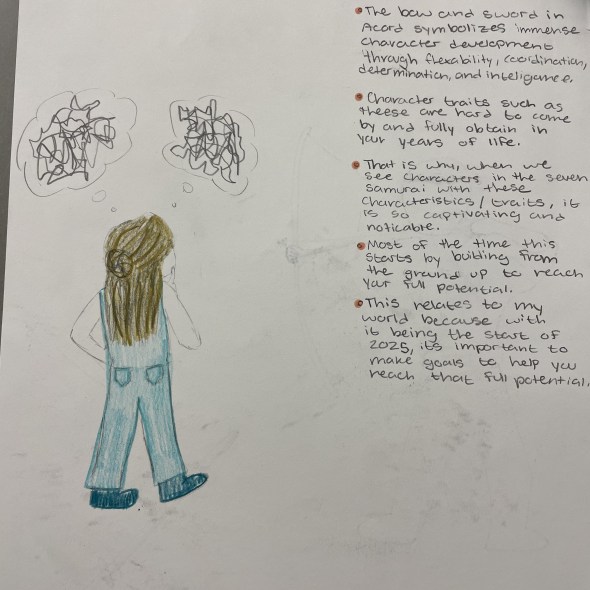 • The bow and sword in
Acord symbolizes immense
character development
through flexability, coordination,
determination, and inteligance.
• Character traits such as
theese are hard to come
by and fully obtain in
your years of life.
• That is why, when we
see characters in the seven
samurai with these
characteristics/ traits, it
is so captivating and
noticable.
• Most of the time this
starts by building from
the ground up to reach
your full potential.
• This relates to my
world because with
it being the start of
2025, its important to
make goals to help you
reach that full potential.